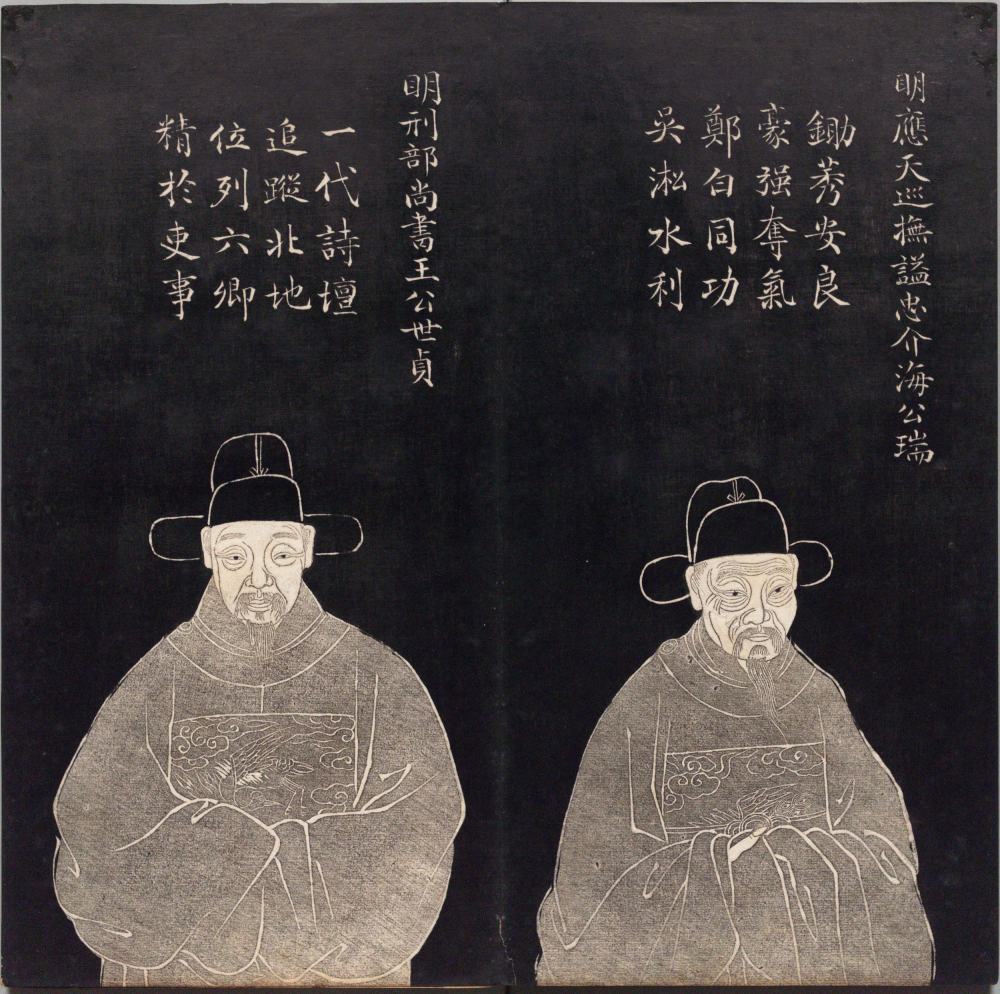 明應天巡撫謚忠介海公瑞
鋤莠安良
豪强奪氣
鄭白同功
吳淞水利
明刑部尚書王公世貞
一代詩壇
追蹤北地
位列六卿
精於吏事